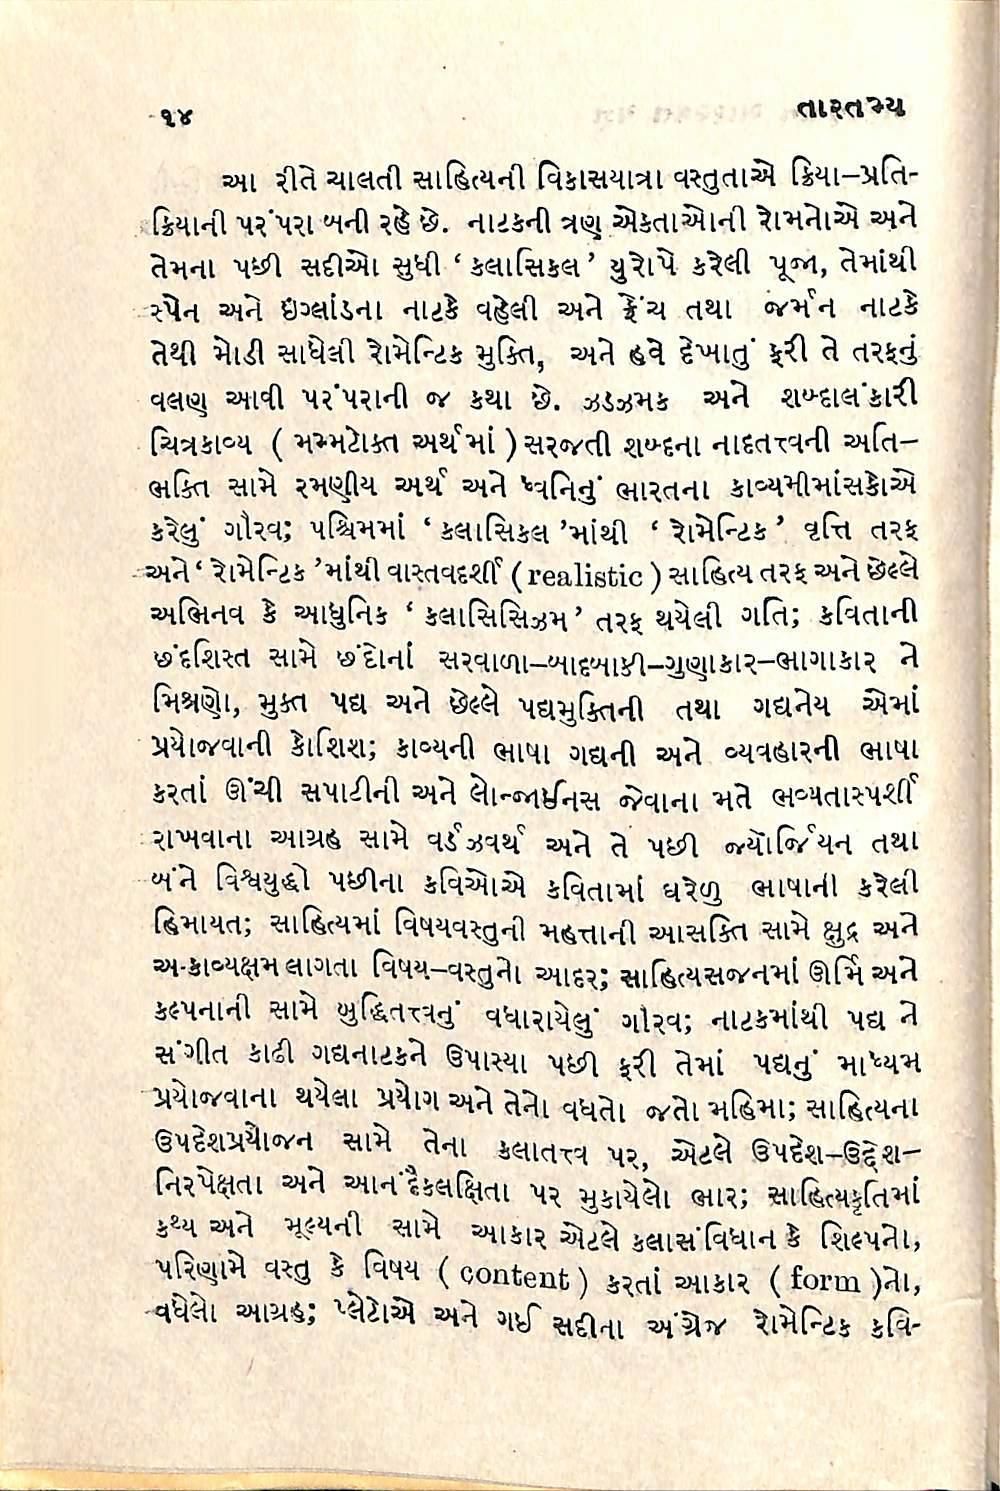 ૧૪
તારતમ્ય
આ રીતે ચાલતી સાહિત્યની વિકાસયાત્રા વસ્તુતાએ ક્રિયા–પ્રતિ-
ક્રિયાની પરંપરા બની રહે છે. નાટકની ત્રણ એકતાઓની રોમનોએ અને
તેમના પછી સદીઓ સુધી ‘ કલાસિકલ ’ યુરોપે કરેલી પૂજા, તેમાંથી
સ્પેન અને ઇંગ્લાંડના નાટકે વહેલી અને ફ્રેંચ તથા જર્મન નાટકે
તેથી મોડી સાધેલી રોમેન્ટિક મુક્તિ, અને હવે દેખાતું ફરી તે તરફનું
વલણ આવી પરંપરાની જ કથા છે. ઝડઝમક અને શબ્દાલંકારી
ચિત્રકાવ્ય ( મમ્મટોક્ત અર્થમાં ) સરજતી શબ્દના નાદતત્ત્વની અતિ–
ભક્તિ સામે રમણીય અર્થ અને ધ્વનિનું ભારતના કાવ્યમીમાંસકોએ
કરેલું ગૌરવ; પશ્ચિમમાં ‘ કલાસિકલ ’માંથી ‘ રોમેન્ટિક ’ વૃત્તિ તરફ
અને ‘ રોમેન્ટિક ’માંથી વાસ્તવદર્શી ( realistic ) સાહિત્ય તરફ અને છેલ્લે
અભિનવ કે આધુનિક ‘ કલાસિસિઝમ ’ તરફ થયેલી ગતિ; કવિતાની
છંદશિસ્ત સામે છંદોનાં સરવાળા–બાદબાકી–ગુણાકાર–ભાગાકાર ને
મિશ્રણો, મુક્ત પદ્ય અને છેલ્લે પદ્યમુક્તિની તથા ગદ્યનેય એમાં
પ્રયોજવાની કોશિશ; કાવ્યની ભાષા ગદ્યની અને વ્યવહારની ભાષા
કરતાં ઊંચી સપાટીની અને લોન્જાઈનસ જેવાના મતે ભવ્યતાસ્પર્શી
રાખવાના આગ્રહ સામે વર્ડઝવર્થ અને તે પછી જ્યૉર્જિયન તથા
બંને વિશ્વયુદ્ધો પછીના કવિઓએ કવિતામાં ઘરેળુ ભાષાની કરેલી
હિમાયત; સાહિત્યમાં વિષયવસ્તુની મહત્તાની આસક્તિ સામે ક્ષુદ્ર અને
અ-કાવ્યક્ષમ લાગતા વિષય–વસ્તુનો આદર; સાહિત્યસર્જનમાં ઊર્મિ અને
કલ્પનાની સામે બુદ્ધિતત્ત્વનું વધારાયેલું ગૌરવ; નાટકમાંથી પદ્ય ને
સંગીત કાઢી ગદ્યનાટકને ઉપાસ્યા પછી ફરી તેમાં પદ્યનું માધ્યમ
પ્રયોજવાના થયેલા પ્રયોગ અને તેનો વધતો જતો મહિમા; સાહિત્યના
ઉપદેશપ્રયોજન સામે તેના કલાતત્ત્વ પર, એટલે ઉપદેશ–ઉદ્દેશ–
નિરપેક્ષતા અને આનંદૈકલક્ષિતા પર મુકાયેલો ભાર; સાહિત્યકૃતિમાં
કથ્ય અને મૂલ્યની સામે આકાર એટલે કલાસંવિધાન કે શિલ્પનો,
પરિણામે વસ્તુ કે વિષય ( content ) કરતાં આકાર ( form )નો,
વધેલો આગ્રહ; પ્લેટોએ અને ગઈ સદીના અંગ્રેજ રોમેન્ટિક કવિ-